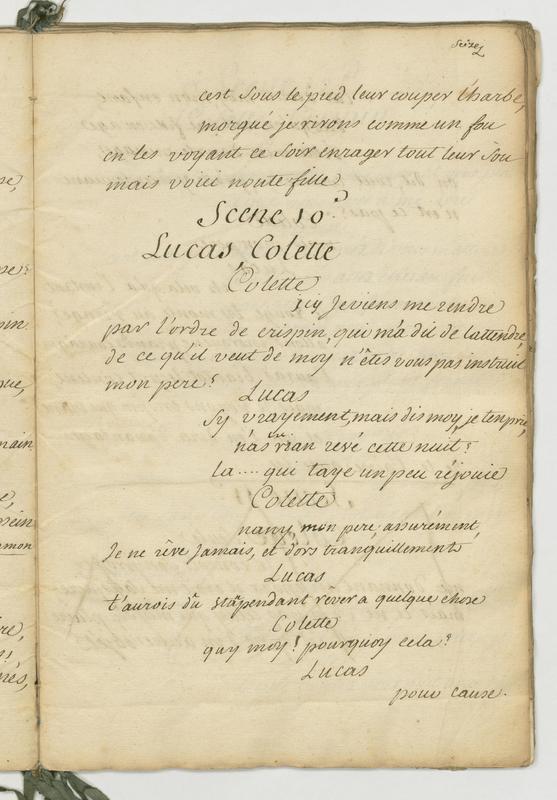 Seize
cest sous le pied leur couper l'harbe,
morgué je rirons comme un fou
en les voyant ce soir enrager tout leur sou
mais voici noute fille
Scene 10e
Lucas, Colette
Colette
Icy Jeviens me rendre
par l'ordre de crispin, qui m'a dit de l'attendre,
de ce qu'il veut de moy n'êtes vous pas instruit
mon pere?
Lucas
Sy vrayement, mais dis moy, je ten prie,
n'as tu rian revé cette nuit?
la.... qui taye un peu réjouie
Colette
nany mon pere, assurément,
Je ne rêve Jamais, et dors tranquillement
Lucas
t'aurois du stapendant rever a quelque chose
Colette
quy moy! pourquoy cela?
Lucas
pour cause.